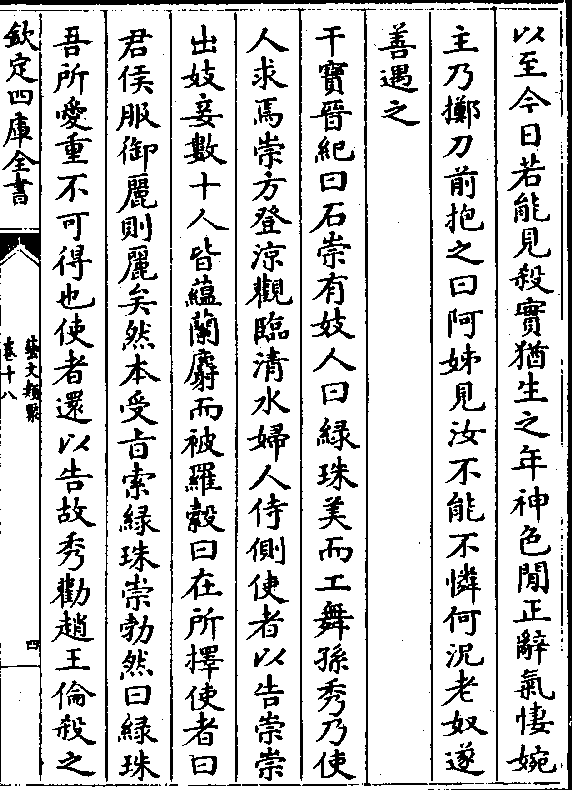 以至今日若能見殺實猶生之年神色閒正辭氣悽婉
主乃擲刀前抱之曰阿姊見汝不能不憐何況老奴遂
善遇之
干寶晉紀曰石崇有妓人曰綠珠美而工舞孫秀乃使
人求焉崇方登涼觀臨清水婦人侍側使者以告崇崇
出妓妾數十人皆蘊蘭麝而被羅縠曰在所擇使者曰
君侯服御麗則麗矣然本受㫖索綠珠崇勃然曰綠珠
吾所愛重不可得也使者還以告故秀勸趙王倫殺之
欽定四庫全書
藝文類聚
卷十八
四